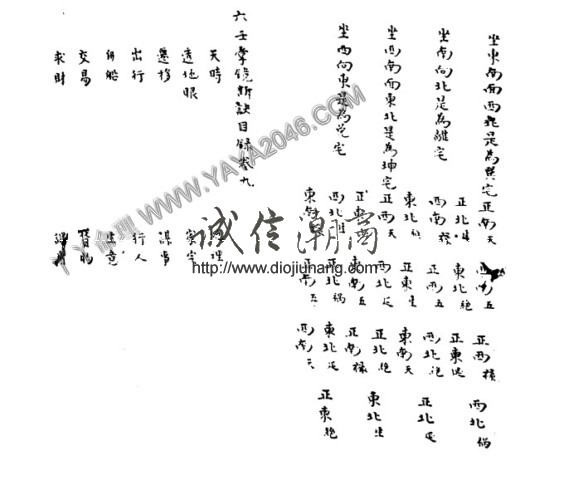 坐東南面西北是為巽宅正南天 西南五 正西 西北禍
正北生 東北絕 正東延
坐南向北是為離宅西南 正西五 西北絕 正北延
東北 正東生 東南天
坐西南面東北是為坤宅正西天 西北延 正北絕 東北生
正東 東南五 正南
坐西向東是為兌宅西北 正北禍 東北延 正東絕
東南 正南五 西南天
六壬掌鏡斷訣目錄卷九
天時 地理
透地眼 家宅
遷移 謀事
出行 行人
舟船 生意
交易
求財
诚信潮商
http://www.diojiuhang.com/
WWW.YAYA2046.COM